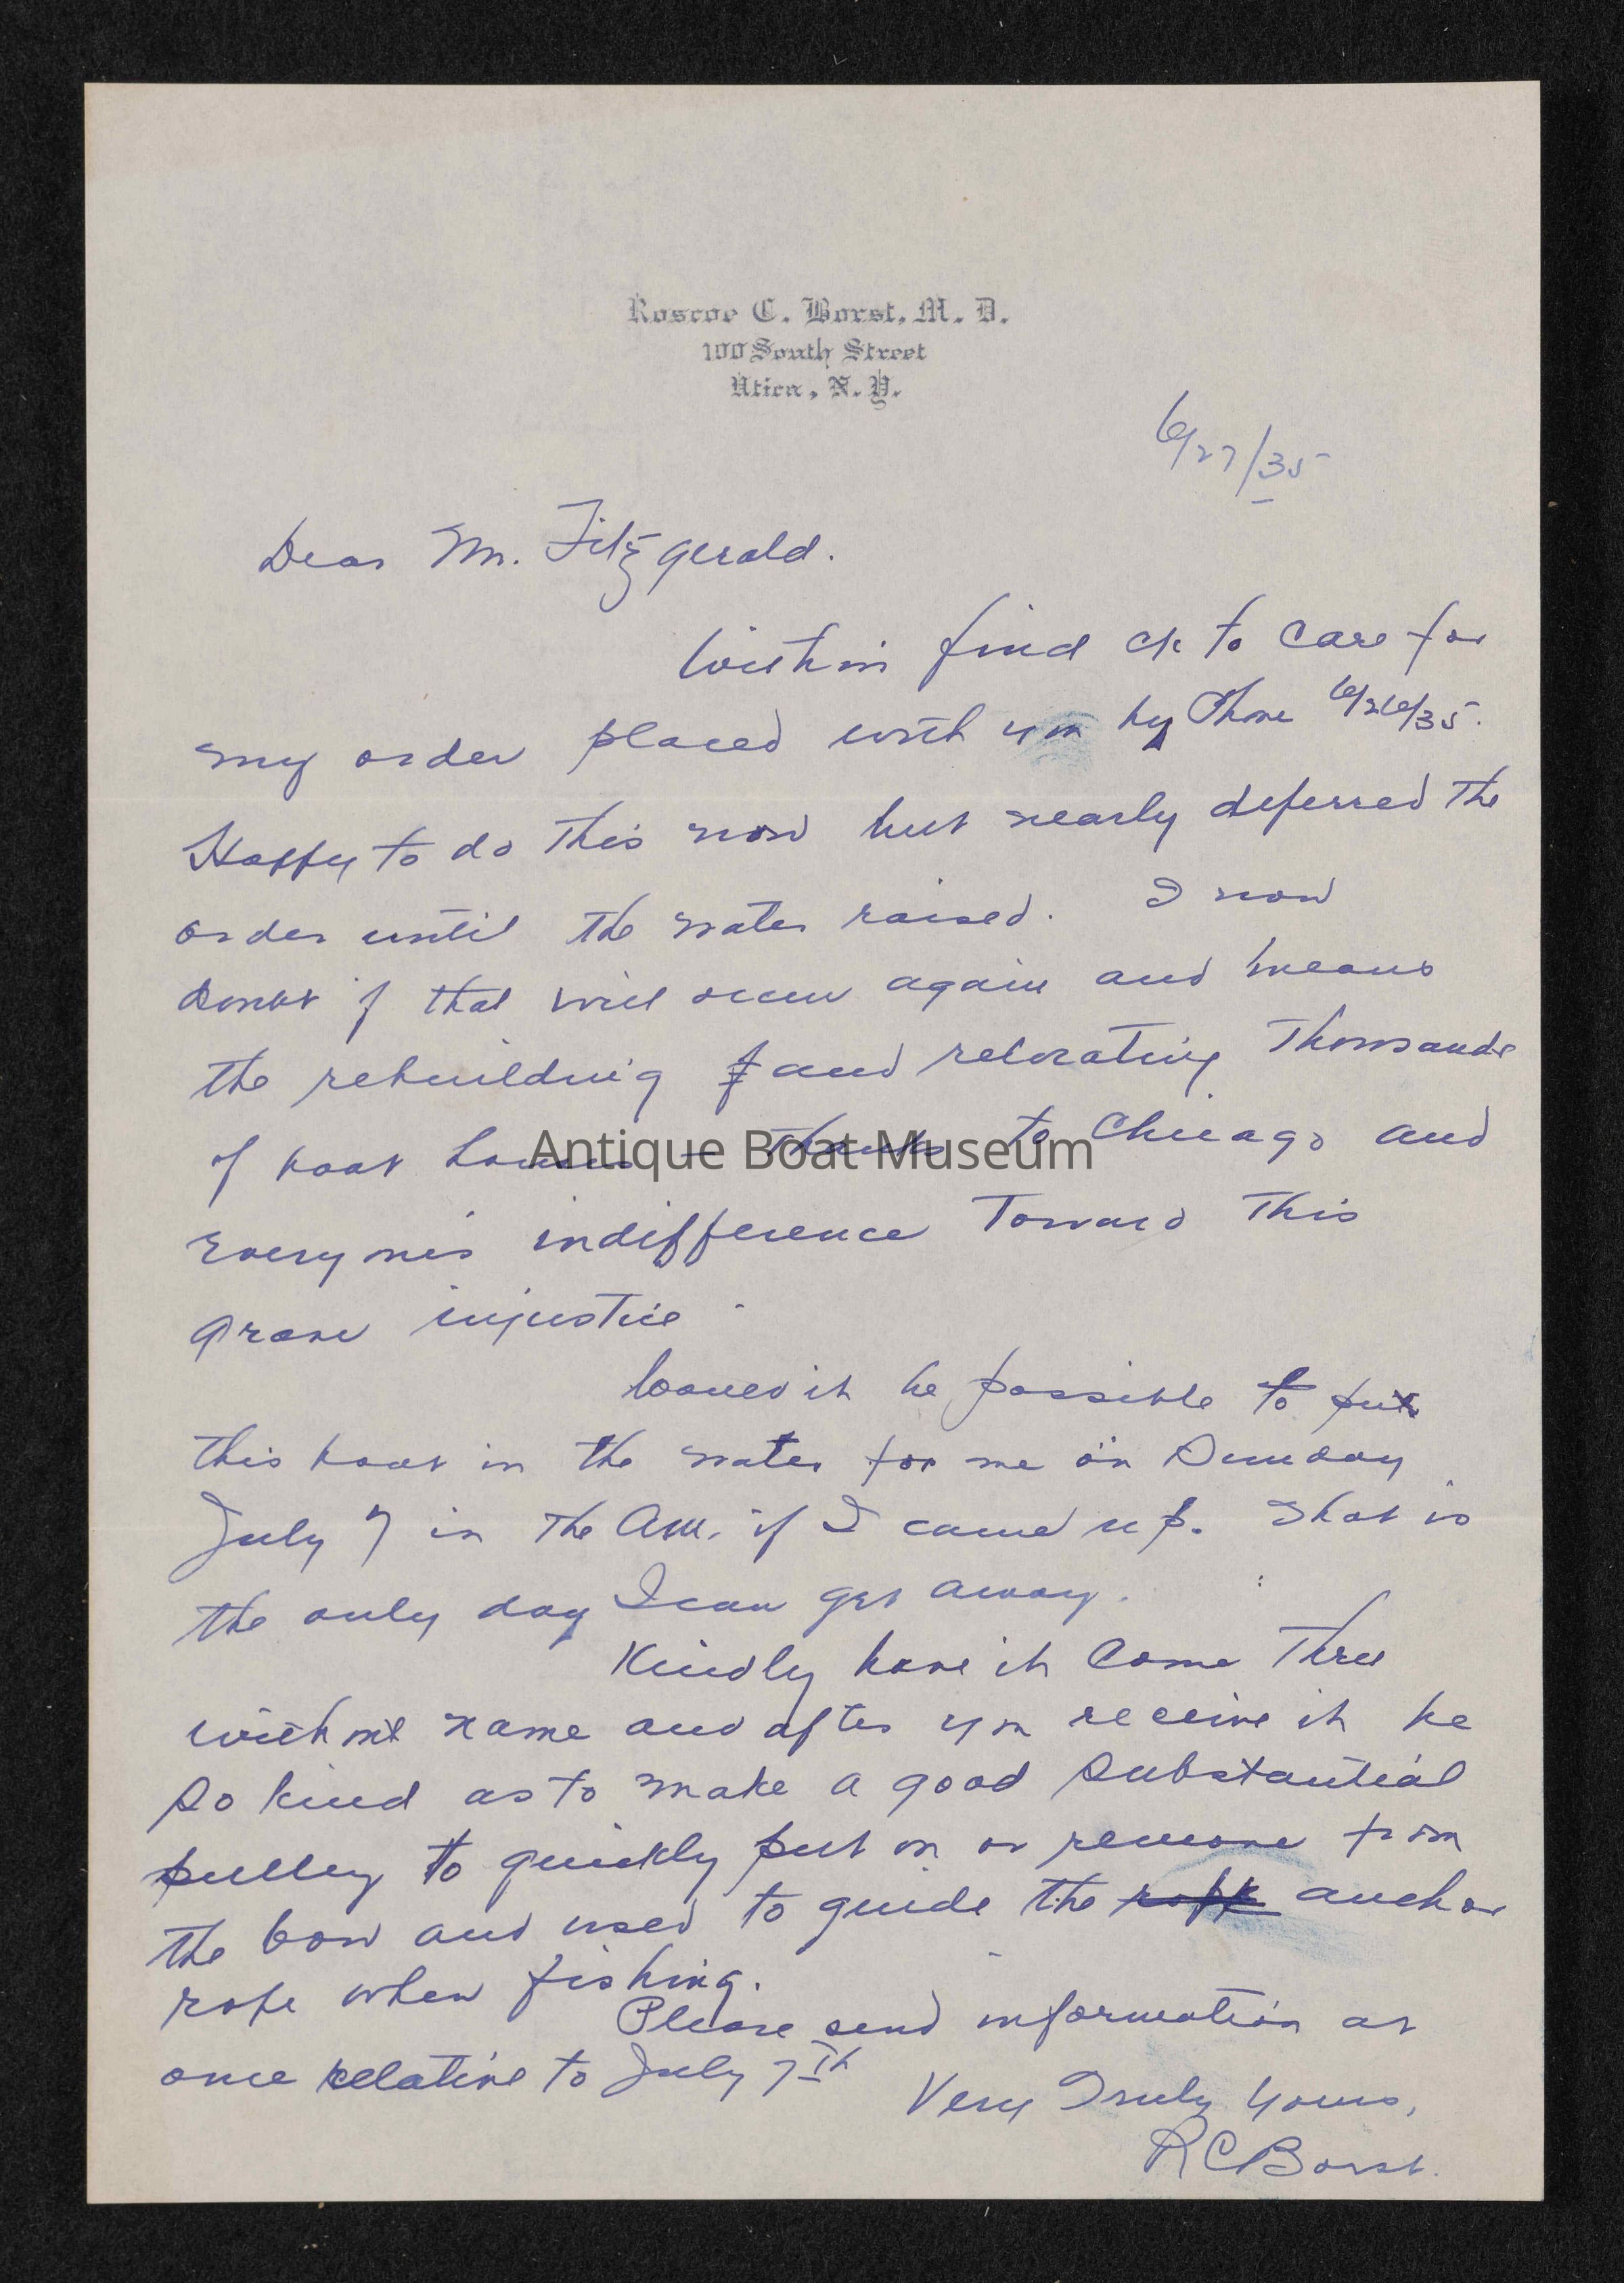 Roscoe C. Borst, M. D.
100 South Street
Utica, N. Y.
6/27/35
Dear Mr. Fitzgerald.
Within find ck to care for
my order placed with you by Phone 6/26/35.
Happy to do this now but nearly deferred the
order until the water raised. I now
doubt if that will occur again and means
the rebuilding and relocating thousands
of boat houses - Thanks to Chicago and
everyones indifference toward this
grave injustice.
Would it be possible to put
this boat in the water for me on Sunday
July 7 in the AM. if I came up. That is
the only day I can get away.
Kindly have it come thru
without name and after you receive it be
so kind as to make a good substantial
pulley to quickly put on or remove from
the bow and used to guide the rope anchor
rope when fishing.
Please send information at
once relative to July 7th
Very Truly Yours,
RC Borst.
Antique Boat Museum